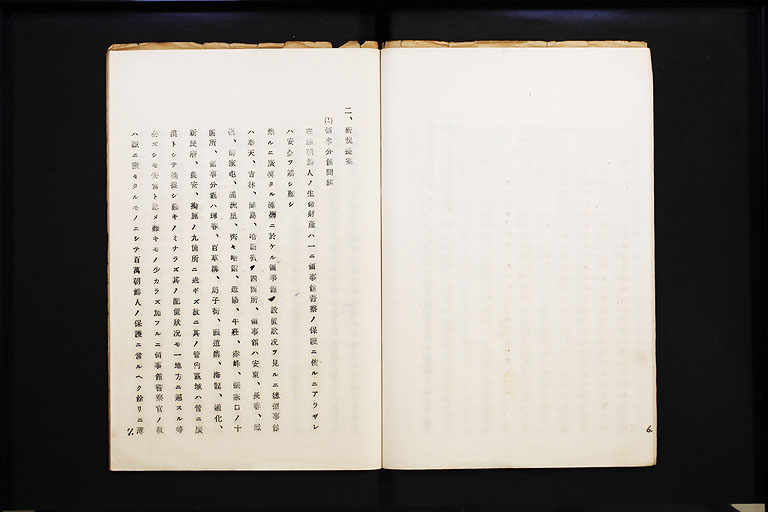 二、新規提案
(1)領事分館開設
在滿朝鮮人ノ生命財産ハ一ニ領事館警察ノ保護ニ依ルニアラザレ
ハ安全ヲ期シ難シ
然ルニ廣漠タル滿洲ニ於ケル領事館ノ設置狀况ヲ見ルニ總領事館
ハ奉天、吉林、間島、哈爾賓ノ四箇所、領事館ハ安東、長春、鐵
嶺、鄭家屯、滿洲里、齊々哈爾、遼陽、牛莊、赤峰、張家口ノ十
箇所、領事分館ハ琿春、百草溝、局子街、頭道溝、海龍、通化、
新民府、農安、掏鹿ノ九箇所ニ過ギズ故ニ其ノ管內區域ハ皆ニ廣
漠トシテ捕捉シ難キノミナラズ其ノ配置狀况モ一地方ニ過スル等
必ズシモ安當ト認メ難キモノ少カラズ加フルニ領事館警察官ノ數
ハ誠ニ微々タルモノニシテ百萬朝鮮人ノ保護ニ當ルヘク餘リニ薄
7.
6.